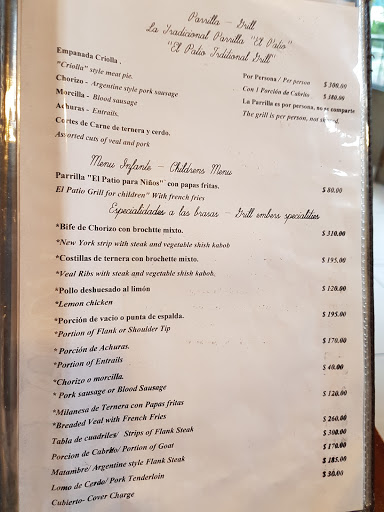 Parrilla – Grill
La Tradicional Parrilla "El Patio"
"El Patio Traditional Grill"
Empanada Criolla .
"Criolla" style meat pie.
Chorizo - Argentine style pork sausage
Morcilla - Blood sausage
Achuras - Entrails.
Cortes de Carne de ternera y cerdo.
Assorted cuts of veal and pork
Por Persona / Per person $ 300.00
Con 1 Porción de Cabrito $ 380.00
La Parrilla es por persona, no se comparte
The grill is per person, not shared.
Menu Infante – Childrens Menu
Parrilla "El Patio para Niños" con papas fritas.
El Patio Grill for children" With french fries $ 80.00
Especialidades a las brasas – Grill embers specialities
*Bife de Chorizo con brochtte mixto. $ 310.00
*New York strip with steak and vegetable shish kabob
*Costillas de ternera con brochette mixto. $ 195.00
*Veal Ribs with steak and vegetable shish kabob.
*Pollo deshuesado al limón $ 120.00
*Lemon chicken
*Porción de vacio o punta de espalda. $ 195.00
*Portion of Flank or Shoulder Tip
* Porción de Achuras. $ 170.00
*Portion of Entrails
*Chorizo o morcilla. $ 40.00
* Pork sausage or Blood Sausage
*Milanesa de Ternera con Papas fritas $ 120.00
*Breaded Veal with French Fries
Tabla de cuadriles/ Strips of Flank Steak $ 260.00
Porcion de Cabrito/ Portion of Goat $ 300.00
Matambre/ Argentine style Flank Steak $ 170.00
Lomo de Cerdo/ Pork Tenderloin $ 185.00
Cubierto- Cover Charge $ 30.00